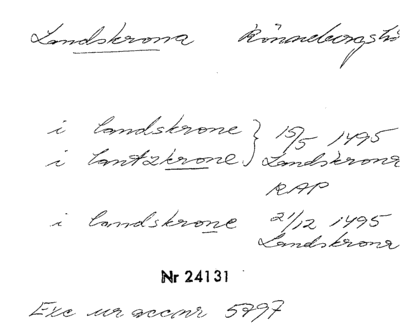 Landskrona Rönnebergs hd
i landskrone } 15/5 1495
i lantzkrone } Landskrona
RAP
i landskrone 21/12 1495
Landskrona
Nr 24131
Exc ur accnr 5797